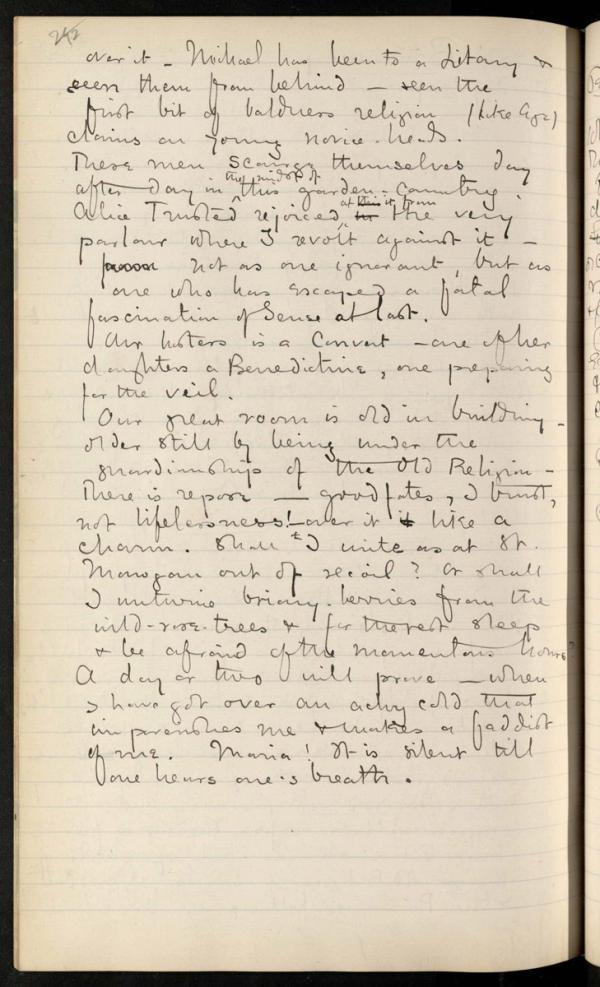 242
over it – Michael has been to a Litany &
seen them from behind – seen the
first bit of baldness religion (like Age)
claims on young novice-heads.
These men scourge themselves day
after day in the midst of this garden-country.
Alice Trusted rejoiced at it from the very
parlour where I revolt against it –
not as one ignorant, but as
one who has escaped a fatal
fascination of Sense at last.
Our hostess is a Convert – one of her
daughters a Benedictine, one preparing
for the veil.
Our great room is old in building –
older still by being under the
guardianship of the Old Religion –
There is repose – good fates, I trust,
not lifelessness! – over it like a
charm. Shall I write as at St.
out of recoil? Or shall
I untwine briony-berries from the
wild-rose-trees & for the rest sleep
& be afraid of the momentous hours?
A day or two will prove – when
I have got over an achy cold that
impoverishes me & makes a faddist
of me. Maria! It is silent till
one hears one's breath.